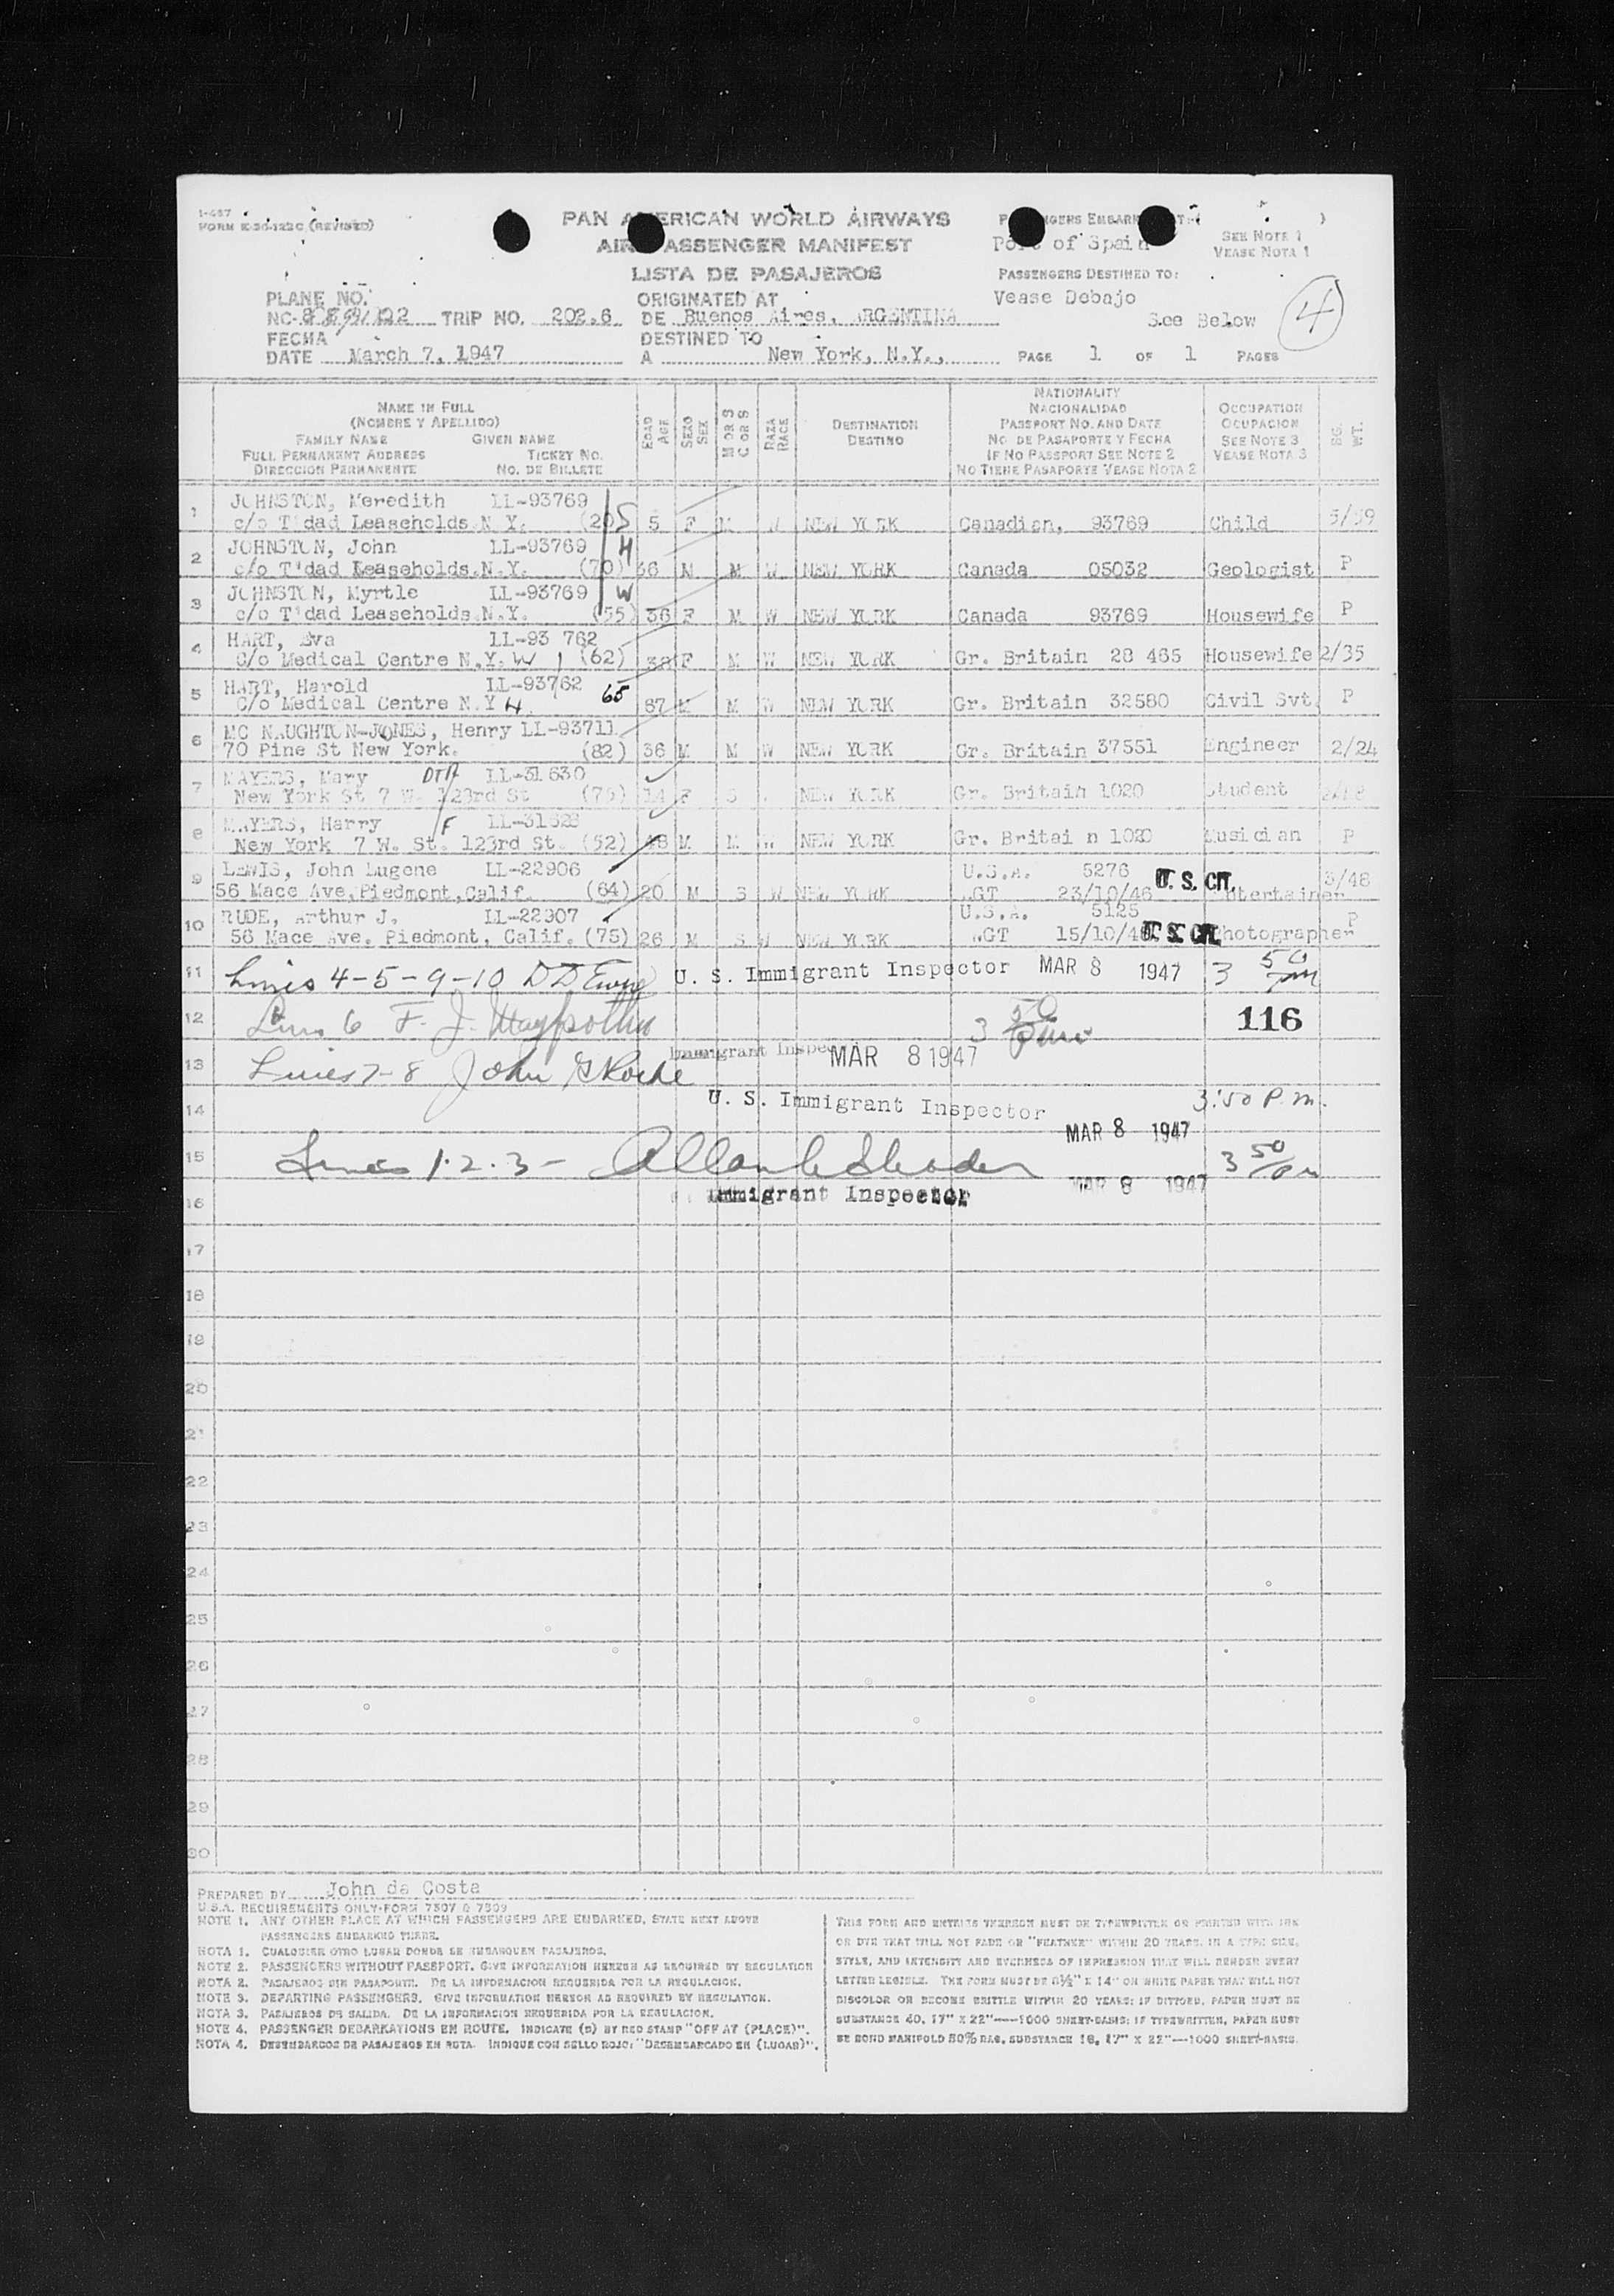 I-487
FORM K-30-122C (REVISED)
PAN AMERICAN WORLD AIRWAYS
AIR PASSENGER MANIFEST
LISTA DE PASAJEROS
Port of Spain
SEE NOTE 1
VEASE NOTA 1
PASSENGERS DESTINED TO:
Vease Debajo
See Below
4
PLANE NO.
NC- TRIP NO. 202.6
FECHA
DATE March 7, 1947
ORIGINATED AT
DE Buenos Aires, ARGENTINA
DESTINED TO
A New York, N.Y.,
PAGE 1 OF 1 PAGES
NAME IN FULL
(NOMBRE Y APELLIDO)
FAMILY NAME GIVEN NAME
FULL PERMANENT ADDRESS TICKET NO.
DIRECCION PERMANENTE NO. DE BILLETE
EDAD
AGE
SEXO
SEX
M OR S
C OR S
RAZA
RACE
DESTINATION
DESTINO
NATIONALITY
NACIONALIDAD
PASSPORT NO. AND DATE
NO. DE PASAPORTE Y FECHA
IF NO PASSPORT SEE NOTE 2
NO TIENE PASAPORTE VEASE NOTA 2
OCCUPATION
OCUPACION
SEE NOTE 3
VEASE NOTA 3
BG.
WT.
1 JOHNSTON, Meredith LL-93769
c/o T'dad Leaseholds N.Y. (20) S 5 F M W NEW YORK Canadian, 93769 Child 5/59
2 JOHNSTON, John LL-93769 H
c/o T'dad Leaseholds.N.Y. (70) 36 M M W NEW YORK Canada 05032 Geologist P
3 JOHNSTON, Myrtle LL-93769 W
c/o T'dad Leaseholds N.Y. (55) 36 F M W NEW YORK Canada 93769 Housewife P
4 HART, Eva LL-93 762
C/o Medical Centre N.Y. W (62) 38 F M W NEW YORK Gr. Britain 28 465 Housewife 2/35
5 HART, Harold LL-93762 65
C/o Medical Centre N.Y H 67 M M W NEW YORK Gr. Britain 32580 Civil Svt. P
6 MC NAUGHTON-JONES, Henry LL-93711
70 Pine St New York. (82) 36 M M W NEW YORK Gr. Britain 37551 Engineer 2/24
7 MAYERS, Mary DTR LL-31630
New York St 7 W. 123rd St (75) 14 F S NEW YORK Gr. Britain 1020 Student
8 MAYERS, Harry F LL-31628
New York 7 W. St. 123rd St. (52) 48 M M W NEW YORK Gr. Britai n 1020 Musician P
9 LEWIS, John Eugene LL-22906 U.S.A. 5276
56 Mace Ave, Piedmont, Calif. (64) 20 M S W NEW YORK WGT 23/10/46 U. S. CIT. Entertainer 3/48
10 RUDE, Arthur J. LL-22907 U.S.A. 5125
56 Mace Ave. Piedmont, Calif. (75) 26 M S W NEW YORK WGT 15/10/46 U. S. CIT. Photographer P
11 Lines 4-5-9-10 U. S. Immigrant Inspector MAR 8 1947 3 50 pm
12 Line 6 F. J. 3 50 pm 116
Immigrant Inspector MAR 8 1947
13 Lines 7-8 John G Roche
U. S. Immigrant Inspector 3:50 P.m.
14
MAR 8 1947
15 Lines 1.2.3- 3 50 pm
Immigrant Inspector MAR 8 1947
16
17
18
19
20
21
22
23
24
25
26
27
28
29
30
PREPARED BY John da Costa
U.S.A. REQUIREMENTS ONLY-FORM 7507 & 7509
NOTE 1. ANY OTHER PLACE AT WHICH PASSENGERS ARE EMBARKED, STATE NEXT ABOVE
PASSENGERS EMBARKED THERE.
NOTA 1. CUALQUIER OTRO LUGAR DONDE SE EMBARQUEN PASAJEROS.
NOTE 2. PASSENGERS WITHOUT PASSPORT. GIVE INFORMATION HEREON AS REQUIRED BY REGULATION
NOTA 2. PASAJEROS SIN PASAPORTE. DE LA INFORMACION REQUERIDA POR LA REGULACION.
NOTE 3. DEPARTING PASSENGERS. GIVE INFORMATION HEREON AS REQUIRED BY REGULATION.
NOTA 3. PASAJEROS DE SALIDA. DE LA INFORMACION REQUERIDA POR LA REGULACION.
NOTE 4. PASSENGER DEBARKATIONS EN ROUTE. INDICATE (D) BY RED STAMP "OFF AT (PLACE)".
NOTA 4. DESEMBARCOS DE PASAJEROS EN RUTA. INDIQUE CON SELLO ROJO: "DESEMBARCADO EN (LUGAR)".
THIS FORM AND ENTRIES THEREON MUST BE TYPEWRITTEN OR PRINTED WITH INK
OR DYE THAT WILL NOT FADE OR "FEATHER" WITHIN 20 YEARS, IN A TYPE SIZE,
STYLE, AND INTENSITY AND EVENNESS OF IMPRESSION THAT WILL RENDER EVERY
LETTER LEGIBLE. THE FORM MUST BE 8½" X 14" ON WHITE PAPER THAT WILL NOT
DISCOLOR OR BECOME BRITTLE WITHIN 20 YEARS: IF DITTOED, PAPER MUST BE
SUBSTANCE 40, 17" X 22"—1000 SHEET-BASIS: IF TYPEWRITTEN, PAPER MUST
BE BOND MANIFOLD 50% RAG, SUBSTANCE 16, 17" X 22"—1000 SHEET-BASIS.